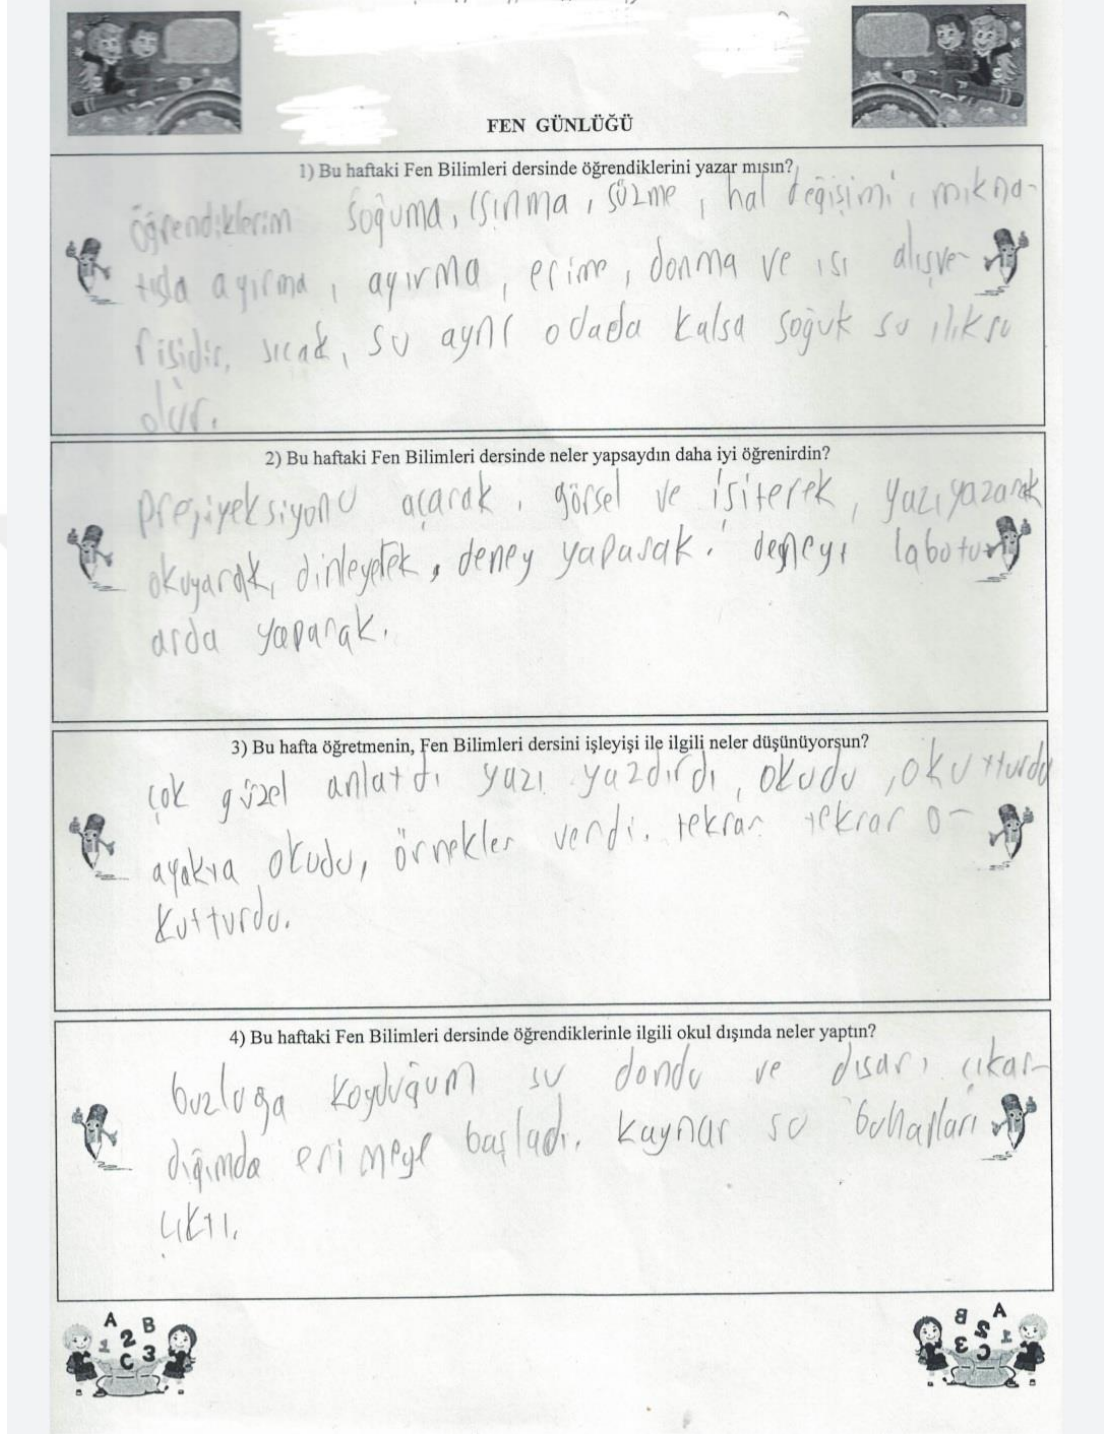 FEN GÜNLÜĞÜ
1) Bu haftaki Fen Bilimleri dersinde öğrendiklerini yazar mısın?
öğrendiklerim soğuma, ısınma, süzme, hal değişimi, mıkna-
tısla ayırma, ayırma, erime, donma ve ısı alışve-
rişidir, sıcak, su aynı odada kalsa soğuk su ılık su
olur.
2) Bu haftaki Fen Bilimleri dersinde neler yapsaydın daha iyi öğrenirdin?
açarak, görsel ve işiterek, yazı yazarak
okuyarak, dinleyerek, deney yaparak. deneyi labotur
arda yaparak.
3) Bu hafta öğretmenin, Fen Bilimleri dersini işleyişi ile ilgili neler düşünüyorsun?
çok güzel anlatdı yazı yazdırdı, okudu, okutturdu
ayakta okudu, örnekler verdi. tekrar tekrar o-
kutturdu.
4) Bu haftaki Fen Bilimleri dersinde öğrendiklerinle ilgili okul dışında neler yaptın?
buzluğa koyduğum su dondu ve dısarı çıkar-
dığımda erimeye başladı. kaynar su buharları
çıktı.
A B
1 2
C 3
A B
1 2
C 3